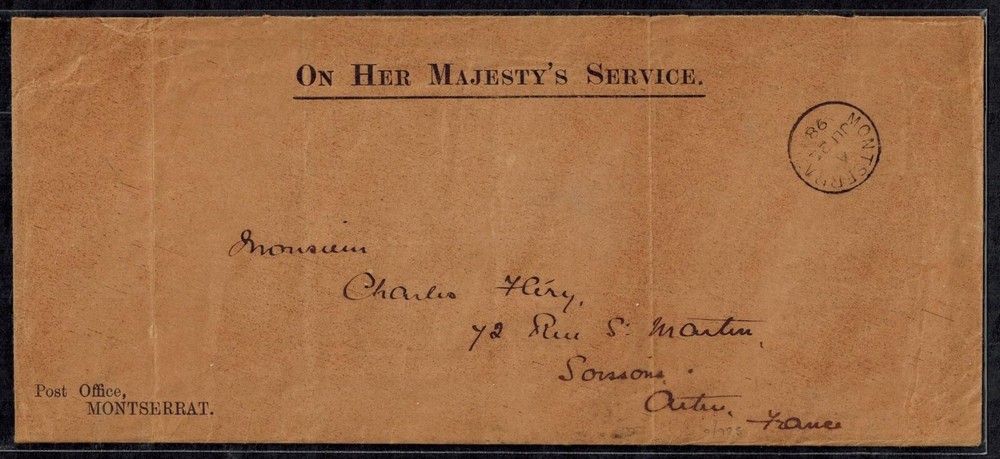 ON HER MAJESTY'S SERVICE.
MONTSERRAT
A
98
Monsieur
Charles Fléry,
72 Rue St Martin,
Soissons.
France
Post Office,
MONTSERRAT.